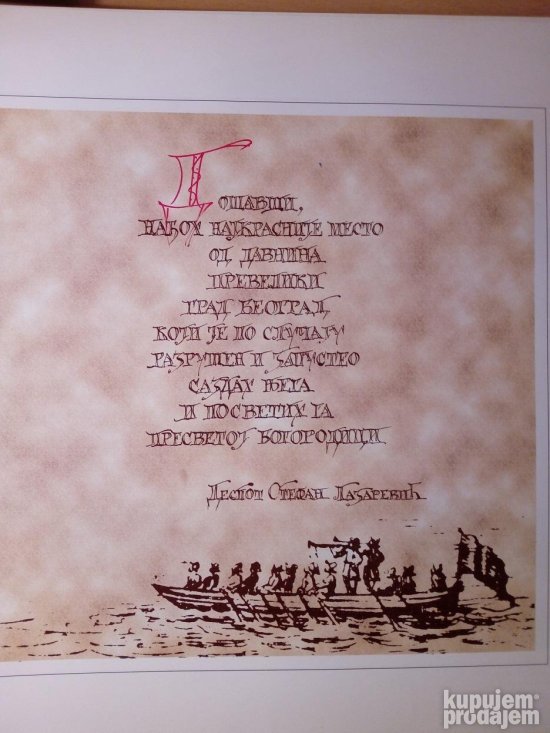 Дошавши,
нађох најкрасније место
од давнина
превелики
град Београд,
који је по случају
разрушен и запустео
саздах њега
и посветих га
пресветој Богородици
Деспот Стефан Лазаревић
kupujem
prodajem